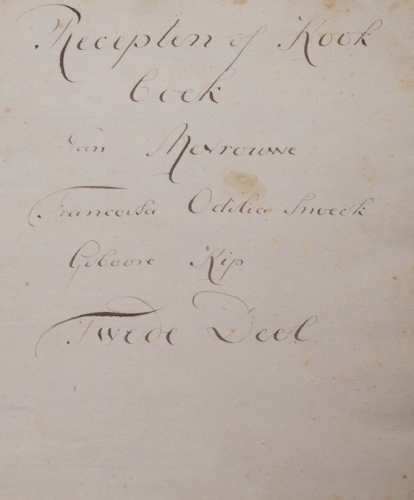 Recepten of Kook
boek
Van Mevrouwe
Francoisa Odilia Snoeck
Geboore Kip
Twede Deel